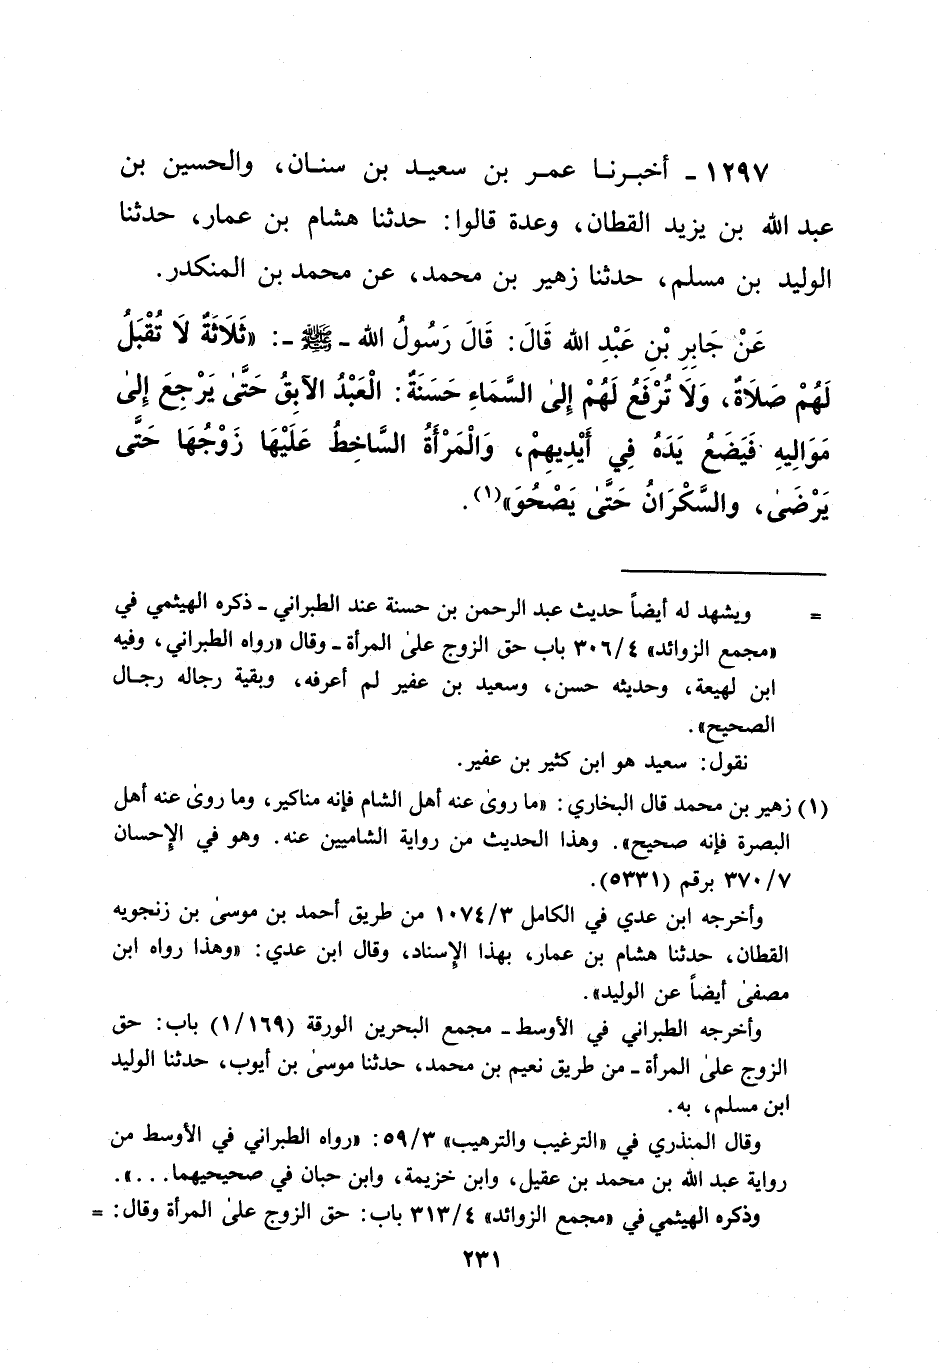 ١٢٩٧ - أخبرنا عمر بن سعيد بن سنان، والحسين بن
عبد الله بن يزيد القطان، وعدة قالوا: حدثنا هشام بن عمار، حدثنا
الوليد بن مسلم، حدثنا زهير بن محمد، عن محمد بن المنكدر.
عَنْ جَابِرِ بْنِ عَبْدِ الله قَالَ: قَالَ رَسُولُ الله - ﷺ -: «ثَلَاثَةٌ لَا تُقْبَلُ
لَهُمْ صَلَاةٌ، وَلَا تُرْفَعُ لَهُمْ إِلىٰ السَّمَاءِ حَسَنَةٌ: الْعَبْدُ الآبِقُ حَتَّىٰ يَرْجِعَ إِلىٰ
مَوَالِيهِ فَيَضَعُ يَدَهُ فِي أَيْدِيهِمْ، وَالْمَرْأَةُ السَّاخِطُ عَلَيْهَا زَوْجُهَا حَتَّى
يَرْضَىٰ، والسَّكْرَانُ حَتَّىٰ يَصْحُوَ»(١).
= ويشهد له أيضاً حديث عبد الرحمن بن حسنة عند الطبراني - ذكره الهيثمي في
«مجمع الزوائد» ٣٠٦/٤ باب حق الزوج علىٰ المرأة - وقال «رواه الطبراني، وفيه
ابن لهيعة، وحديثه حسن، وسعيد بن عفير لم أعرفه، وبقية رجاله رجال
الصحيح».
نقول: سعيد هو ابن كثير بن عفير.
(١) زهير بن محمد قال البخاري: «ما روىٰ عنه أهل الشام فإنه مناكير، وما روىٰ عنه أهل
البصرة فإنه صحيح». وهذا الحديث من رواية الشاميين عنه. وهو في الإحسان
٣٧٠/٧ برقم (٥٣٣١).
وأخرجه ابن عدي في الكامل ١٠٧٤/٣ من طريق أحمد بن موسىٰ بن زنجويه
القطان، حدثنا هشام بن عمار، بهذا الإسناد، وقال ابن عدي: «وهذا رواه ابن
مصفىٰ أيضاً عن الوليد».
وأخرجه الطبراني في الأوسط - مجمع البحرين الورقة (١/١٦٩) باب: حق
الزوج علىٰ المرأة - من طريق نعيم بن محمد، حدثنا موسىٰ بن أيوب، حدثنا الوليد
ابن مسلم، به.
وقال المنذري في «الترغيب والترهيب» ٥٩/٣: «رواه الطبراني في الأوسط من
رواية عبد الله بن محمد بن عقيل، وابن خزيمة، وابن حبان في صحيحيهما...».
وذكره الهيثمي في «مجمع الزوائد» ٣١٣/٤ باب: حق الزوج علىٰ المرأة وقال: =
٢٣١